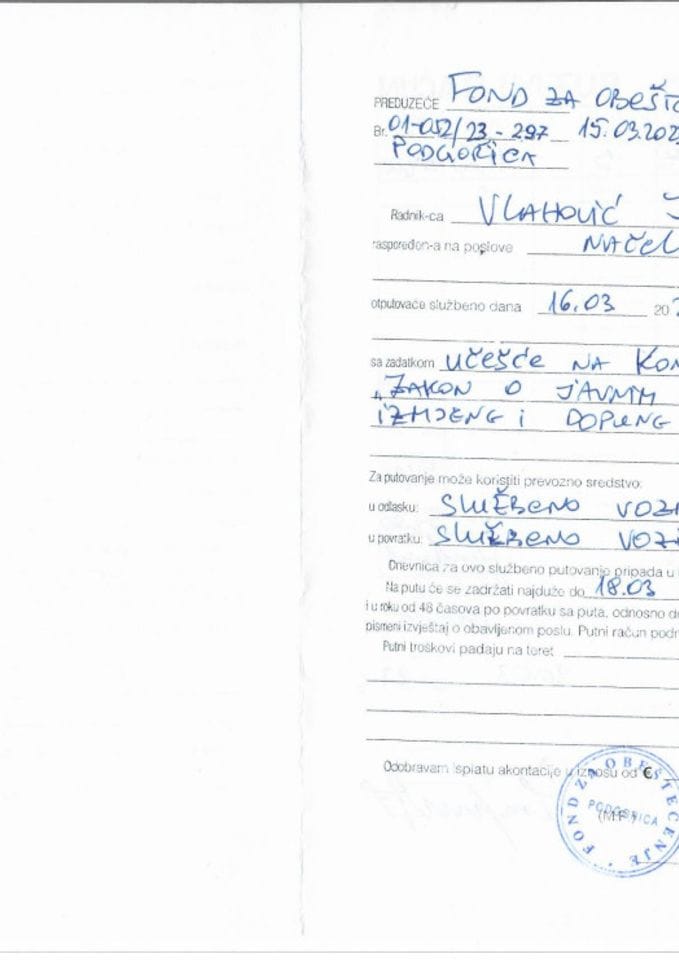 PREDUZEĆE FOND ZA OBEŠT
Br. 01-052/23-297 15.03.202
PODGORICA
Radnik-ca VLAHOVIĆ
raspoređen-a na poslove NAČEL
otputovaće službeno dana 16.03 20
sa zadatkom UČEŠĆE NA KON
"ZAKON O JAVNIM
IZMJENE I DOPUNE
Za putovanje može koristiti prevozno sredstvo:
u odlasku: SLUŽBENO VOZI
u povratku: SLUŽBENO VOZI
Dnevnica za ovo službeno putovanje pripada u
Na putu će se zadržati najduže do 18.03
i u roku od 48 časova po povratku sa puta, odnosno d
pismeni izvještaj o obavljenom poslu. Putni račun podn
Putni troškovi padaju na teret
Odobravam isplatu akontacije u iznosu od €
FOND ZA OBEŠTEĆENJE
PODGORICA
(M.P.)